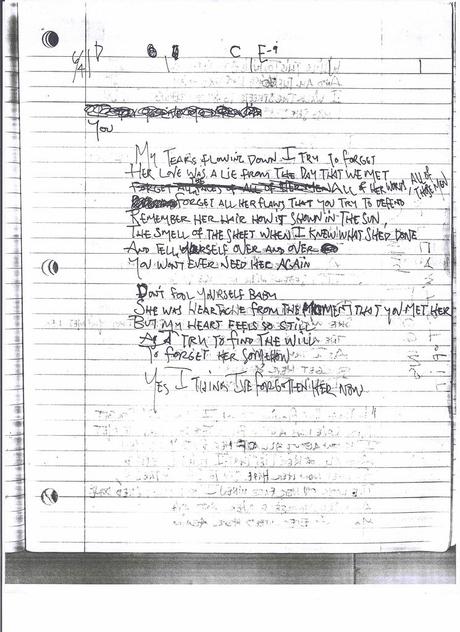 6/4 | D C E-7
You
My Tears flowing down I try to forget
Her love was a lie from the day that we met
all of her words all of those men
forget all her flaws that you try to defend
Remember her hair how it shown in the sun,
the smell of the sheet when I knew what shed done
And tell yourself over and over
You wont ever need her again
Dont fool yourself baby
She was heartache from the moment that you met her
But my heart feels so still
As I try to find the will
To forget her somehow
Yes I think I've forgotten her now